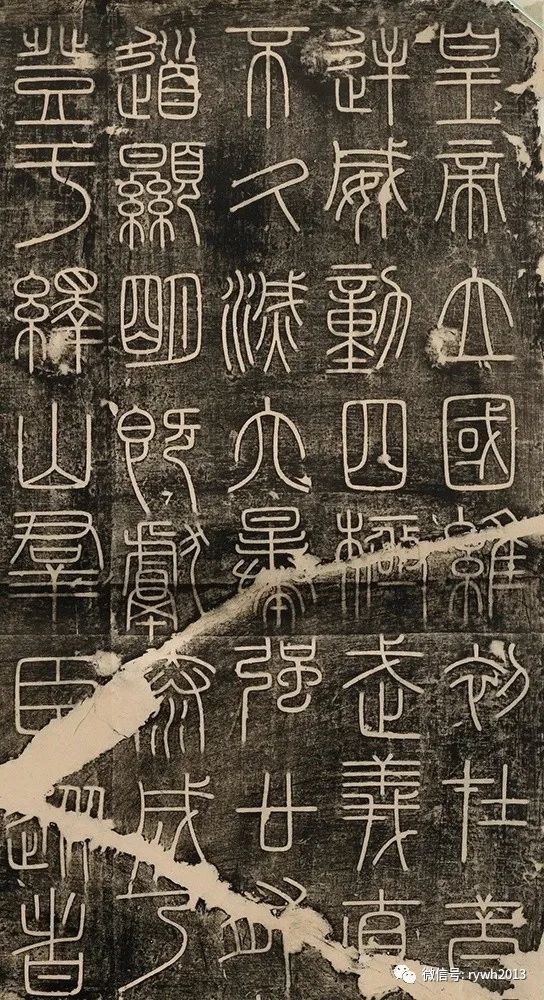 皇帝立國維初在昔
逆威動四極武義直
不久滅六暴強廿有
道顯明既獻泰成乃
登于繹山羣臣從者
微信号: rywh2013